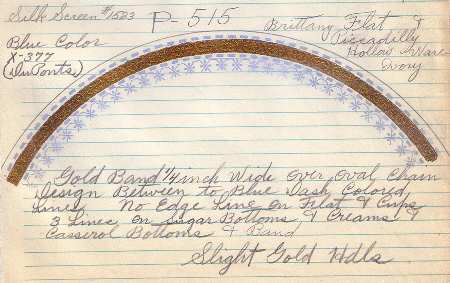 Silk Screen #1503
P-515
Brittany Flat &
Piccadilly
Hollow Ware
Ivory
Blue Color
X-377
(DuPonts)
Gold Band 1/4 inch Wide Over Oval Chain
Design Between to Blue Dash Colored
Lines No Edge Line On Flat & Cups
3 Lines On Sugar Bottoms & Creams &
Casserol Bottoms & Band
Slight Gold Hdls